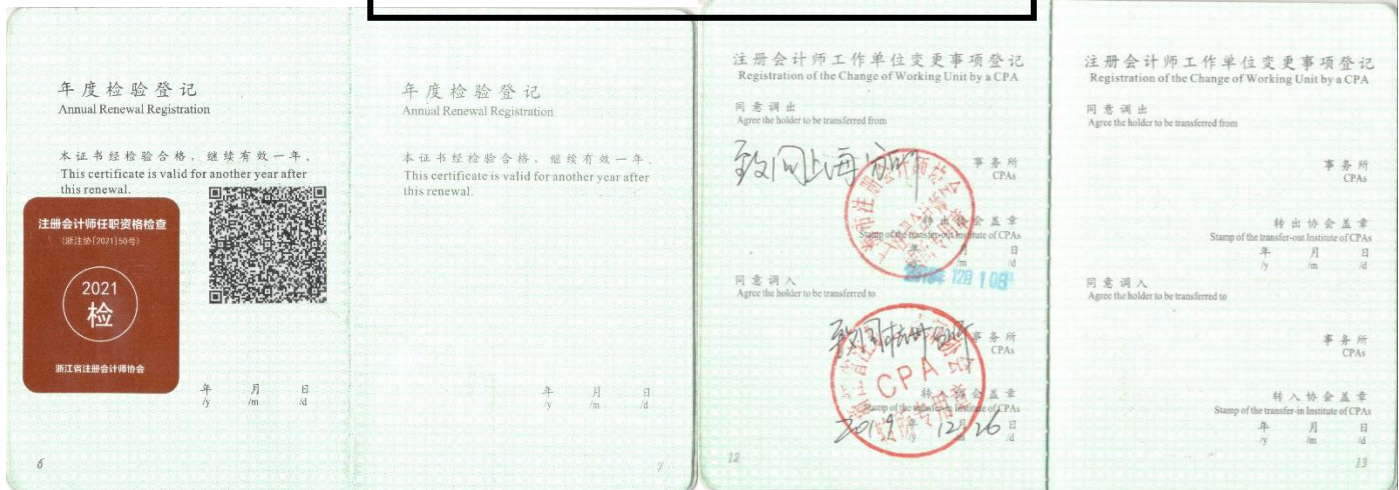 年度检验登记
Annual Renewal Registration
本证书经检验合格，继续有效一年。
This certificate is valid for another year after
this renewal.
注册会计师任职资格检查
(浙注协[2021]50号)
2021
检
浙江省注册会计师协会
年 月 日
/y /m /d
6
年度检验登记
Annual Renewal Registration
本证书经检验合格，继续有效一年。
This certificate is valid for another year after
this renewal.
年 月 日
/y /m /d
7
注册会计师工作单位变更事项登记
Registration of the Change of Working Unit by a CPA
同意调出
Agree the holder to be transferred from
致同上海分所
事务所
CPAs
转出协会盖章
Stamp of the transfer-out Institute of CPAs
年 月 日
/y /m /d
同意调入
Agree the holder to be transferred to
致同杭州分所
事务所
CPAs
CPA
转入协会盖章
Stamp of the transfer-in Institute of CPAs
2019年 12月 26日
/y /m /d
12
注册会计师工作单位变更事项登记
Registration of the Change of Working Unit by a CPA
同意调出
Agree the holder to be transferred from
事务所
CPAs
转出协会盖章
Stamp of the transfer-out Institute of CPAs
年 月 日
/y /m /d
同意调入
Agree the holder to be transferred to
事务所
CPAs
转入协会盖章
Stamp of the transfer-in Institute of CPAs
年 月 日
/y /m /d
13